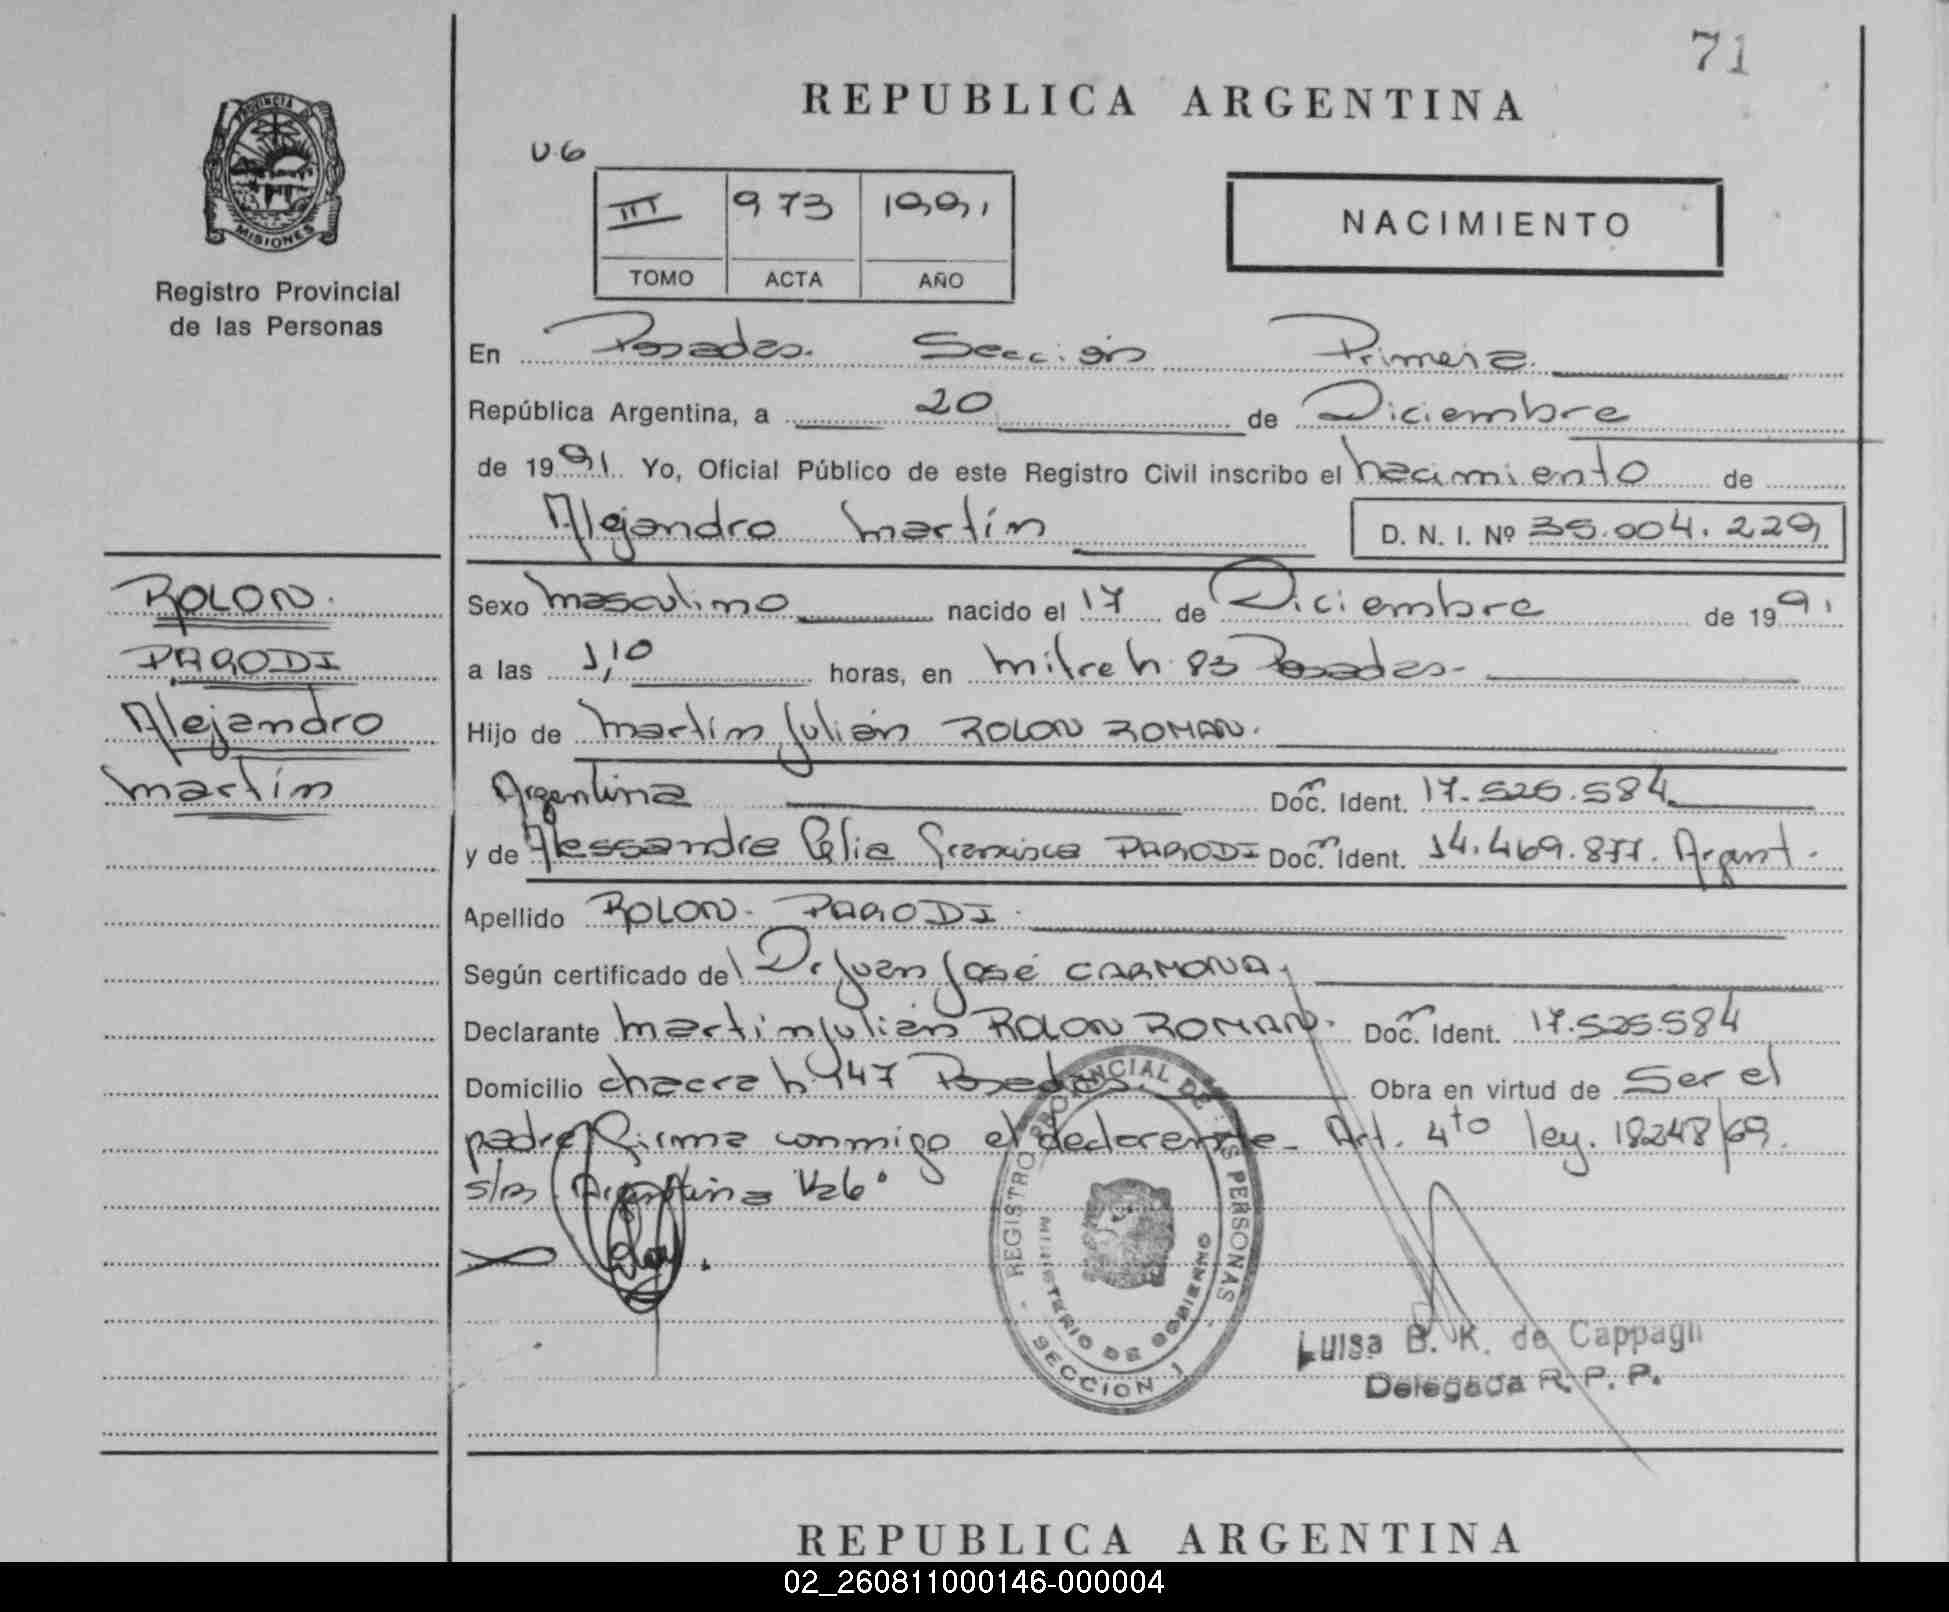 71
REPUBLICA ARGENTINA
U.6
PROVINCIA DE
MISIONES
III 973 1991
TOMO ACTA AÑO
NACIMIENTO
Registro Provincial
de las Personas
En Posadas. Sección Primera.
República Argentina, a 20 de Diciembre
de 1991. Yo, Oficial Público de este Registro Civil inscribo el nacimiento de
Alejandro Martín D. N. I. Nº 35.004.229
ROLON.
PARODI
Alejandro
Martín
Sexo masculino nacido el 17 de Diciembre de 1991
a las 1,10 horas, en Mitre n. 83 Posadas-
Hijo de Martín Julián ROLON ROMAN.
Argentina Doc. Ident. 17.525.584
y de Alessandra Celia Francisca PARODI Doc. Ident. 14.469.877. Argent.
Apellido ROLON. PARODI.
Según certificado del Dr Juan José CARMONA.
Declarante Martín Julián ROLON ROMAN. Doc. Ident. 17.525.584
Domicilio chacra n 147 Posadas. Obra en virtud de Ser el
padre firma conmigo el declarante- Art. 4to ley. 18248/69.
s/n Argentina
REGISTRO PROVINCIAL DE LAS PERSONAS
MINISTERIO DE GOBIERNO
- SECCION 1 -
Luisa B. K. de Cappagli
Delegada R. P. P.
REPUBLICA ARGENTINA
02_260811000146-000004